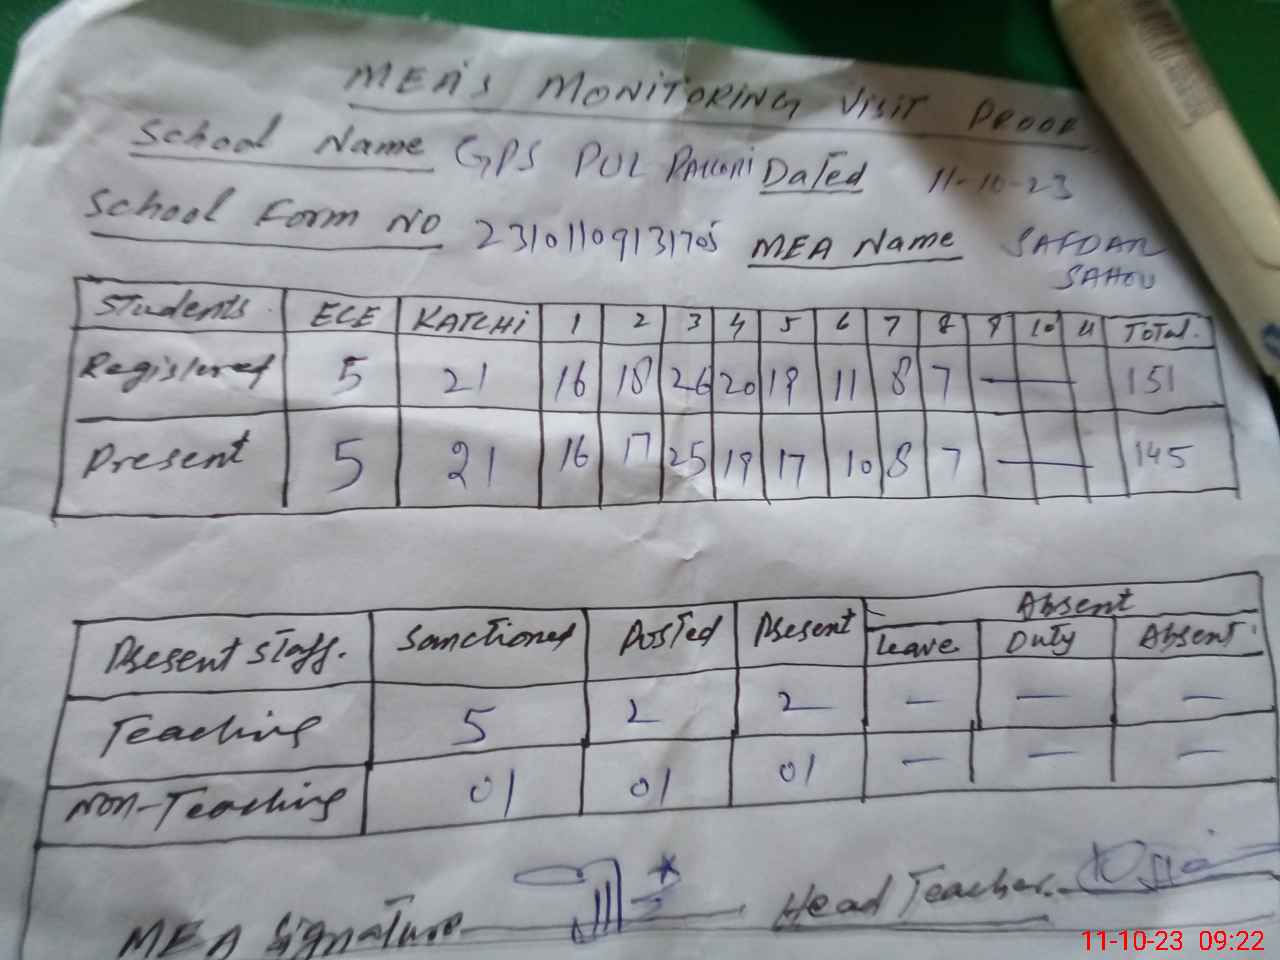 MEA'S MONITORING VISIT PROOF
School Name GPS PUL PAHORI Dated 11-10-23
School Form NO 23101109131705 MEA Name SAFDAR
SAHOU
Students ECE KATCHI 1 2 3 4 5 6 7 8 9 10 11 Total.
Registered 5 21 16 18 26 20 19 11 8 7 — 151
Present 5 21 16 17 25 19 17 10 8 7 — 145
Absent
Present Staff. Sanctioned Posted Present Leave Duty Absent
Teaching 5 2 2 — — —
NON-Teaching 01 01 01 — — —
MEA Signature Head Teacher.
11-10-23 09:22